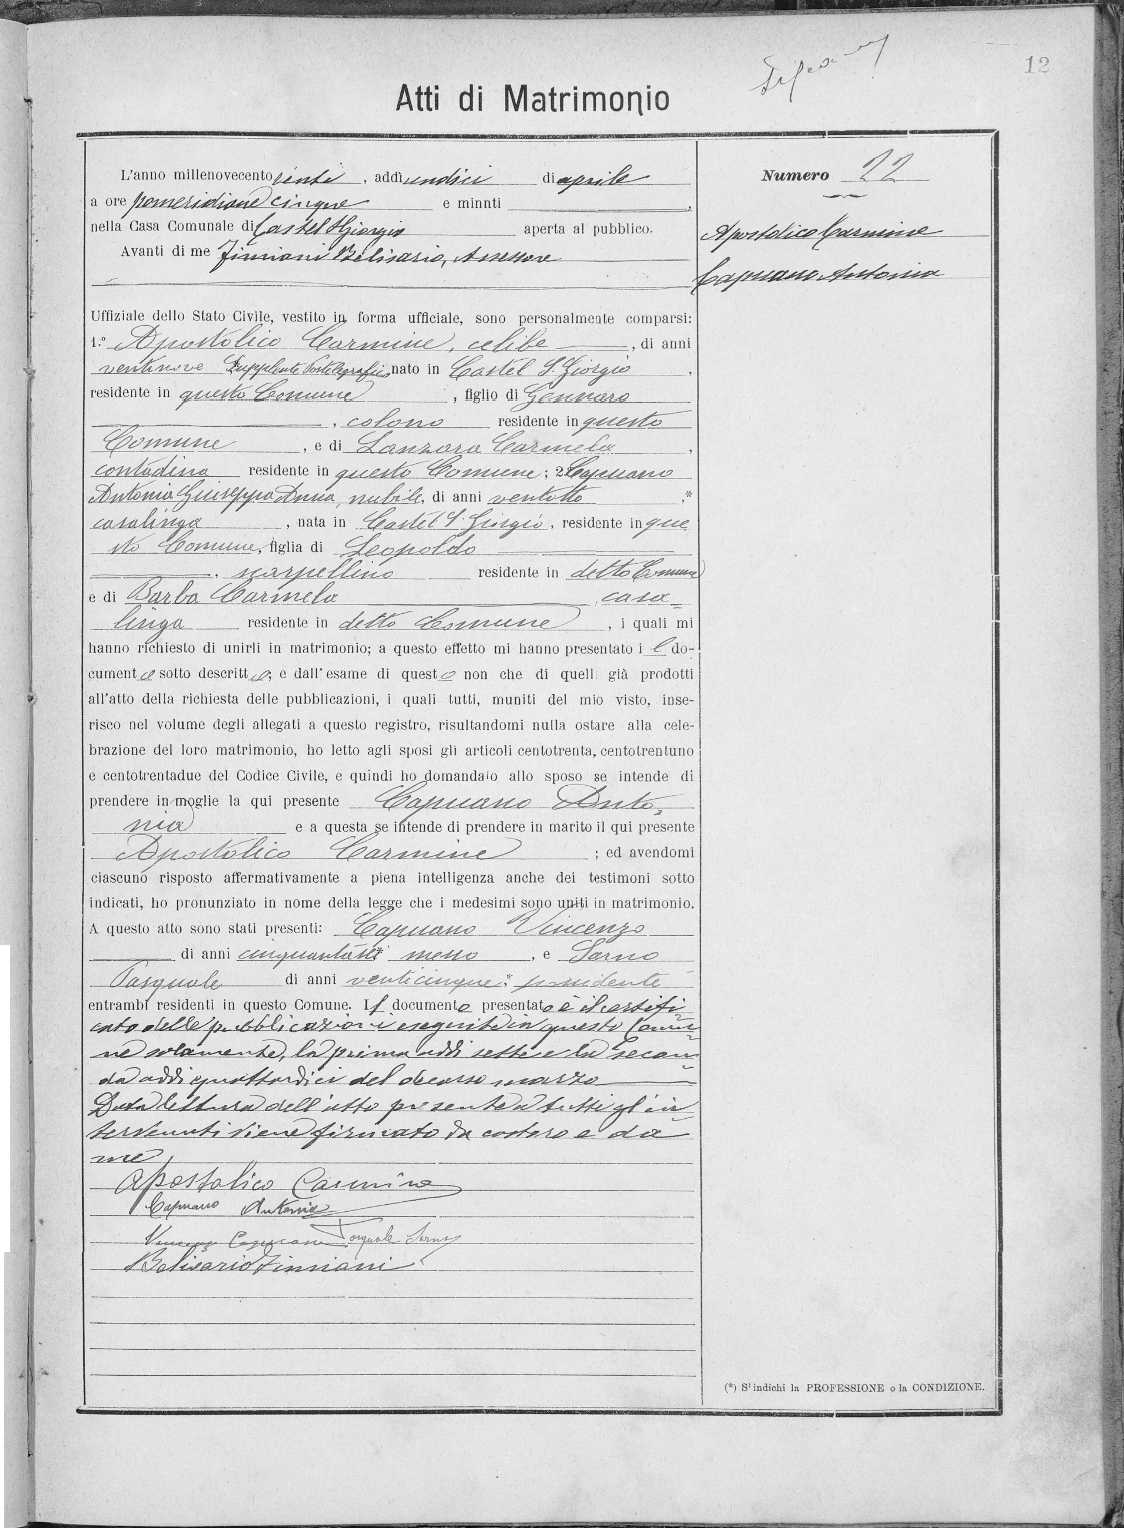 12
Atti di Matrimonio
Numero 22
Apostolico Carmine
Capuano Antonia
L'anno millenovecento venti, addì undici di aprile
a ore pomeridiane cinque e minuti
nella Casa Comunale di Castel S Giorgio aperta al pubblico.
Avanti di me Finiani Belisario, Assessore
Uffiziale dello Stato Civile, vestito in forma ufficiale, sono personalmente comparsi:
1.° Apostolico Carmine, celibe, di anni
ventinove Supplente Postelegrafico nato in Castel S. Giorgio,
residente in questo Comune, figlio di Gennaro
, colono residente in questo
Comune, e di Lanzara Carmela,
contadina residente in questo Comune; 2 Capuano
Antonia Giuseppa Anna, nubile, di anni ventotto,*
casalinga, nata in Castel S. Giorgio, residente in que
sto Comune, figlia di Leopoldo
, scarpellino residente in detto Comune
e di Barba Carmela, casa=
linga residente in detto Comune, i quali mi
hanno richiesto di unirli in matrimonio; a questo effetto mi hanno presentato i l do-
cumento sotto descritto, e dall'esame di questo non che di quelli già prodotti
all'atto della richiesta delle pubblicazioni, i quali tutti, muniti del mio visto, inse-
risco nel volume degli allegati a questo registro, risultandomi nulla ostare alla cele-
brazione del loro matrimonio, ho letto agli sposi gli articoli centotrenta, centotrentuno
e centotrentadue del Codice Civile, e quindi ho domandato allo sposo se intende di
prendere in moglie la qui presente Capuano Anto=
nia e a questa se intende di prendere in marito il qui presente
Apostolico Carmine; ed avendomi
ciascuno risposto affermativamente a piena intelligenza anche dei testimoni sotto
indicati, ho pronunziato in nome della legge che i medesimi sono uniti in matrimonio.
A questo atto sono stati presenti: Capuano Vincenzo
di anni messo, e Sarno
Pasquale di anni venticinque,* possidente
entrambi residenti in questo Comune. Il documento presentato è il certifi
cato delle pubblicazioni eseguite in questo Comu
ne solamente, la prima addì sette e la secon
da addì quattordici del decorso marzo
Data lettura dell'atto presente a tutti gl'in
tervenuti viene firmato da costoro e da
me
Apostolico Carmine
Capuano Antonia
Vincenzo Capuano Pasquale Sarno
Belisario Finiani
(*) S'indichi la PROFESSIONE o la CONDIZIONE.